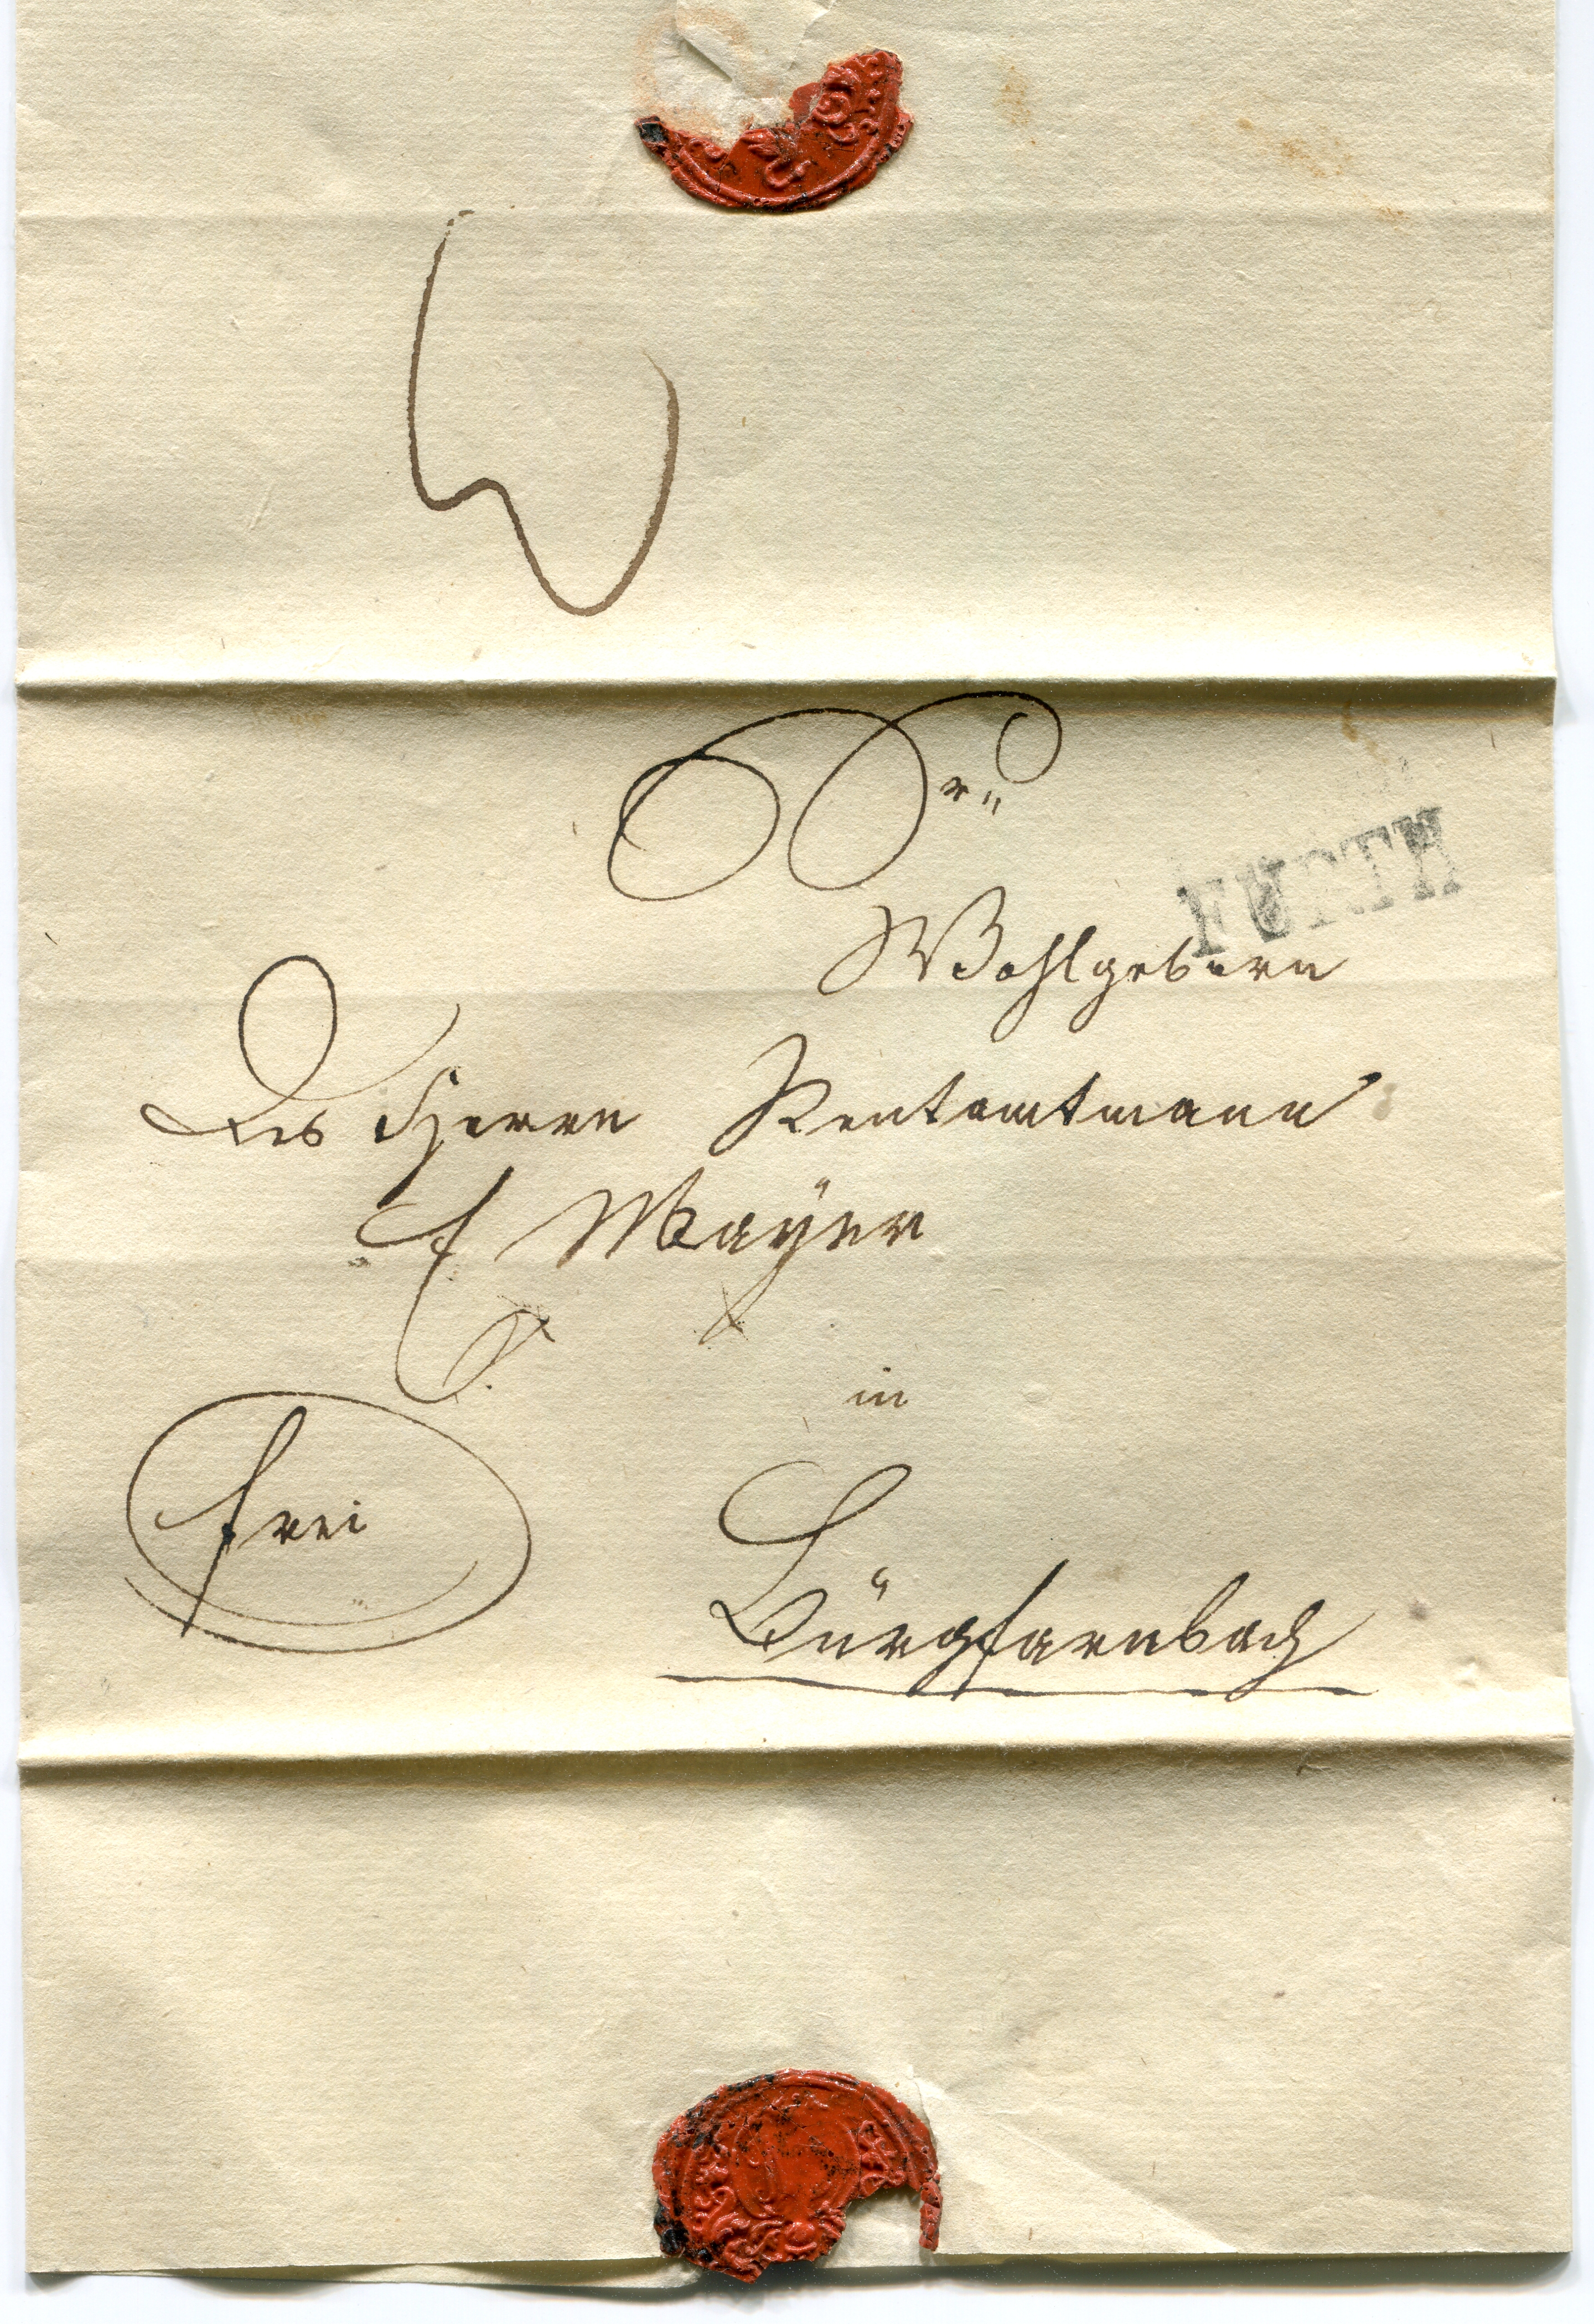 Sr
FÜRTH
Wohlgeborn
des Herrn Rentamtmann
Mayer
in
frei
Bürgfarnbach